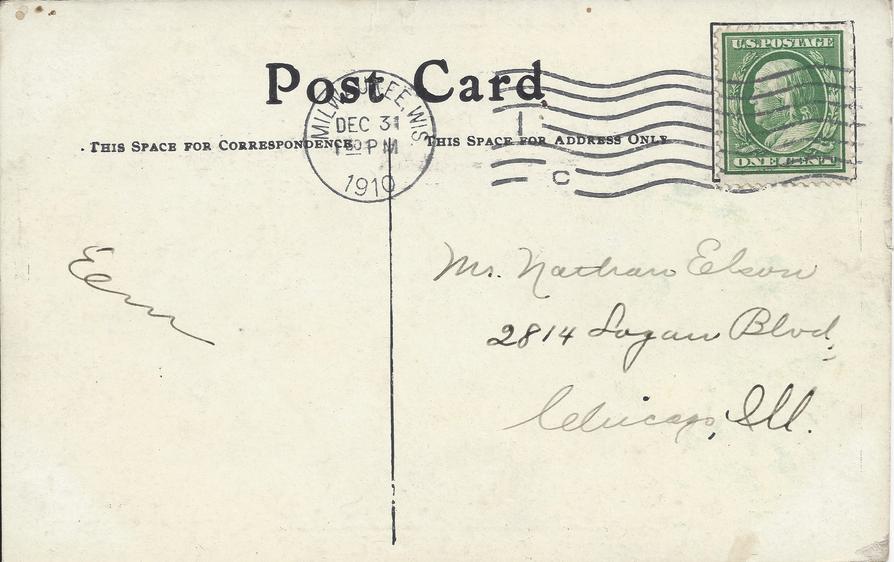 Post Card
THIS SPACE FOR CORRESPONDENCE
THIS SPACE FOR ADDRESS ONLY
MILWAUKEE, WIS.
DEC 31
1 30 PM
1910
1
C
U.S. POSTAGE
ONE CENT
Mr. Nathan Elson
2814 Logan Blvd.
Chicago, Ill.